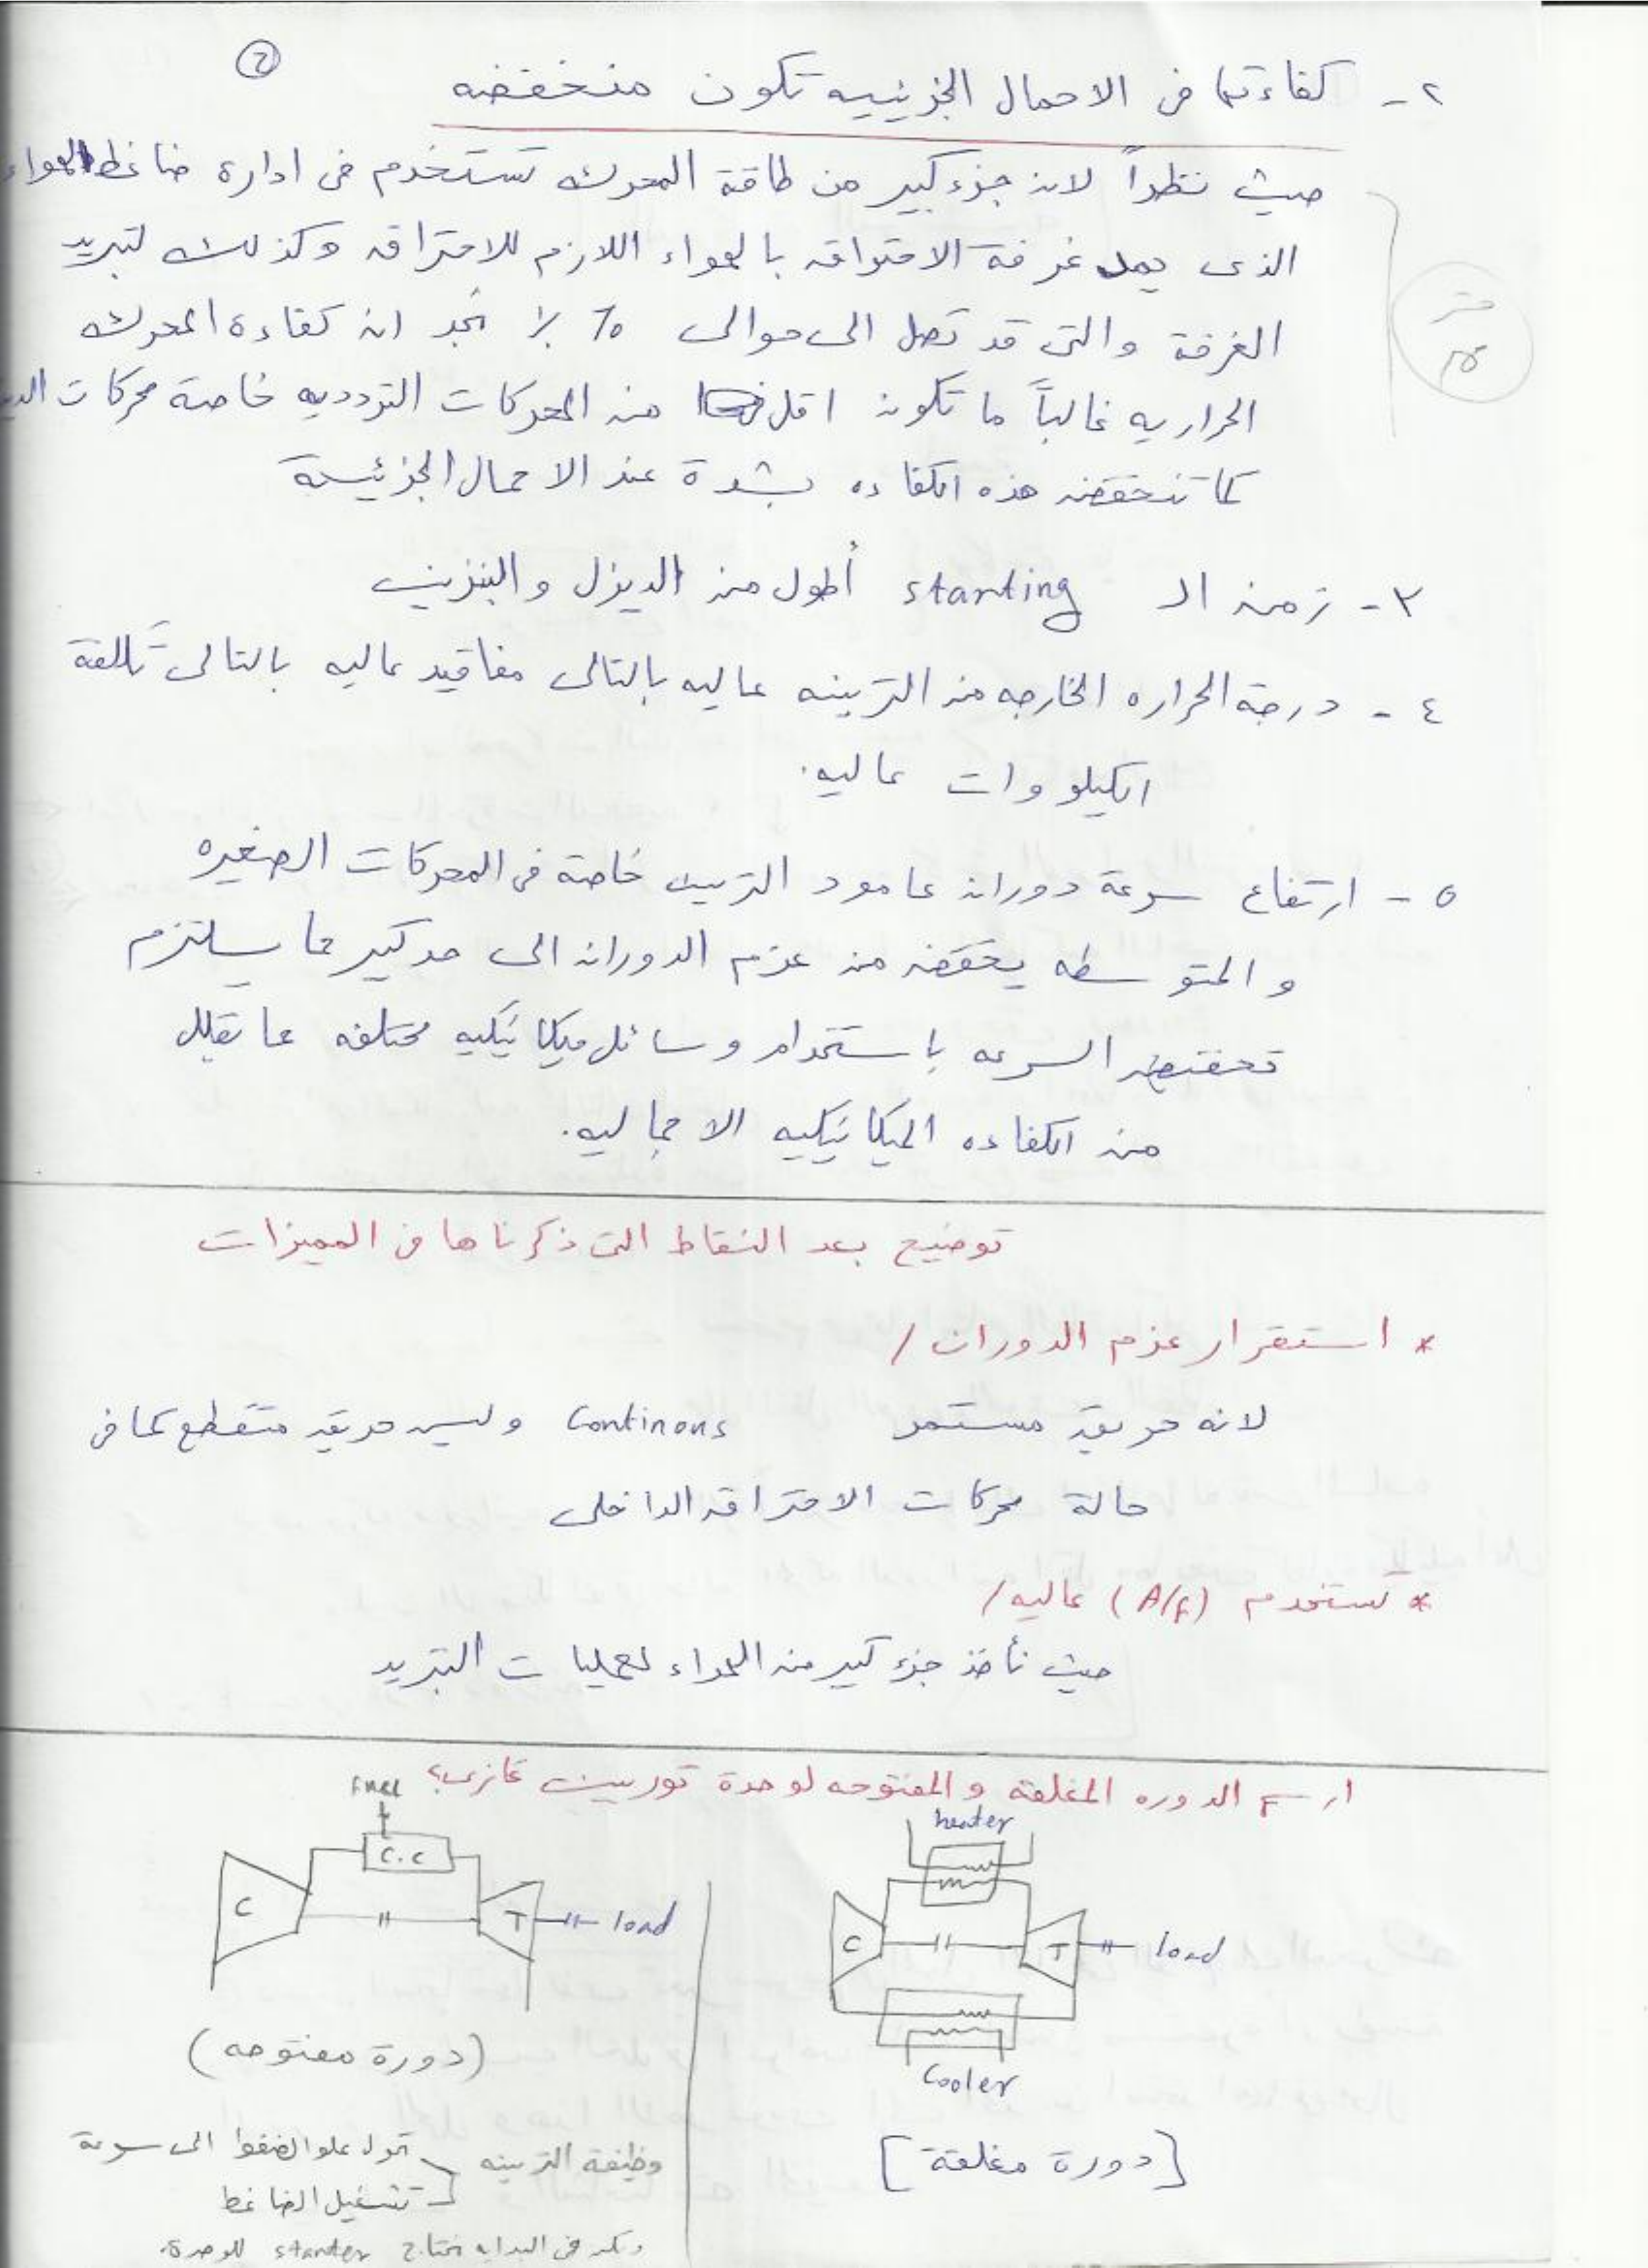 ②
٢- كفاءتها فى الاحمال الجزئييه تكون منخفضه
حيث نظراً لان جزء كبير من طاقة المحرك تستخدم فى ادارة ضاغط الهواء
الذى يمد غرفة الاحتراق بالهواء اللازم للاحتراق وكذلك لتبريد
الغرفة والتى قد تصل الى حوالى ٦٥ % نجد ان كفاءة المحرك
الحراريه غالباً ما تكون اقل من المحركات الترددديه خاصة محركات
كما تنخفض هذه الكفاءه بشدة عند الاحمال الجزئية
٣- زمن ال starting أطول من الديزل والبنزين
٤- درجة الحراره الخارجه من التربينه عاليه بالتالى مفاقيد عاليه بالتالى تكلفة
الكيلووات عاليه.
٥- ارتفاع سرعة دوران عامود التربين خاصة فى المحركات الصغيره
والمتوسطه يخفض من عزم الدوران الى حد كبير مما يستلزم
تخفيض السرعه باستخدام وسائل ميكانيكيه مختلفه مما يقلل
من الكفاءه الميكانيكيه الاجماليه.
توضيح بعد النقاط التى ذكرناها فى المميزات
* استقرار عزم الدوران /
لانه حريق مستمر Continous وليس حريق متقطع كما فى
حالة محركات الاحتراق الداخلى
* تستخدم (A/f) عاليه /
حيث نأخذ جزء كبير من الهواء لعمليات التبريد
ارسم الدوره المغلقة والمفتوحه لوحدة توربين غازى؟
heater
C
T
load
Cooler
[دورة مغلقة]
Fuel
C.C
C
T
load
(دورة مفتوحه)
وظيفة التربينه
تحول علو الضغط الى سرعة
تشغيل الضاغط
ولكن فى البدايه نحتاج starter للوحدة.